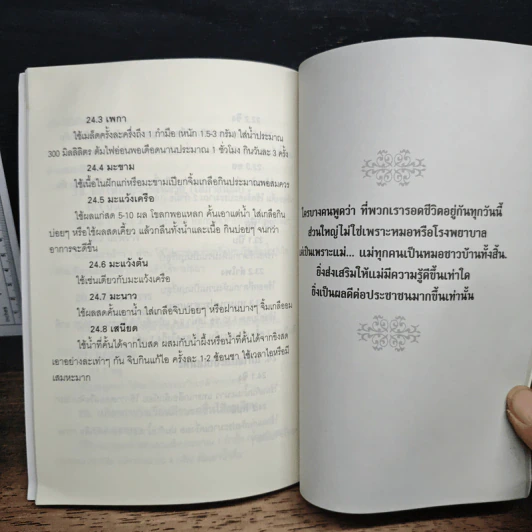 24.3 เพกา
ใช้เมล็ดครั้งละครึ่งถึง 1 กำมือ (หนัก 1.5-3 กรัม) ใส่น้ำประมาณ
300 มิลลิลิตร ต้มไฟอ่อนพอเดือดนานประมาณ 1 ชั่วโมง กินวันละ 3 ครั้ง
24.4 มะขาม
ใช้เนื้อในฝักแก่หรือมะขามเปียกจิ้มเกลือกินประมาณพอสมควร
24.5 มะแว้งเครือ
ใช้ผลแก่สด 5-10 ผล โขลกพอแหลก คั้นเอาแต่น้ำ ใส่เกลือกิน
บ่อยๆ หรือใช้ผลสดเคี้ยว แล้วกลืนทั้งน้ำและเนื้อ กินบ่อยๆ จนกว่า
อาการจะดีขึ้น
24.6 มะแว้งต้น
ใช้เช่นเดียวกับมะแว้งเครือ
24.7 มะนาว
ใช้ผลสดคั้นเอาน้ำ ใส่เกลือจิบบ่อยๆ หรือฝานบางๆ จิ้มเกลืออม
24.8 เสนียด
ใช้น้ำที่คั้นได้จากใบสด ผสมกับน้ำผึ้งหรือน้ำที่คั้นได้จากขิงสด
เอาอย่างละเท่าๆ กัน จิบกินแก้ไอ ครั้งละ 1-2 ช้อนชา ใช้เวลาไอหรือมี
เสมหะมาก
ใครบางคนพูดว่า ที่พวกเรารอดชีวิตอยู่กันทุกวันนี้
ส่วนใหญ่ไม่ใช่เพราะหมอหรือโรงพยาบาล
เป็นเพราะแม่... แม่ทุกคนเป็นหมอชาวบ้านทั้งสิ้น
ยิ่งส่งเสริมให้แม่มีความรู้ดีขึ้นเท่าใด
ยิ่งเป็นผลดีต่อประชาชนมากขึ้นเท่านั้น